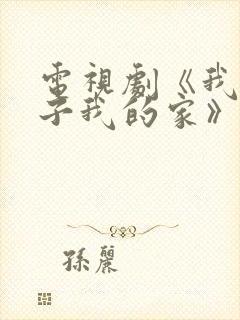 電視劇《我
子我的家》
孫麗